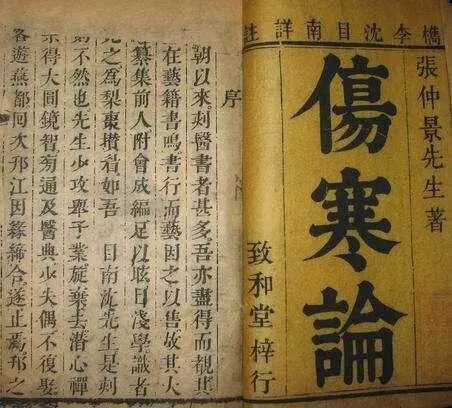 檇李沈目南詳註
張仲景先生著
傷寒論
致和堂梓行
序
朝以來刻醫書者甚多吾亦盡得而觀其
在藝籍書鳴書行而藝因之以售故其人
纂集前人附會成編足以眩目淺學識者
見之為梨棗攢眉如吾 目南沈先生是刻
為不然也先生少攻舉子業旋棄去潛心禪
宗得大圓鏡智旁通及醫典少失偶不復娶
客遊燕都回大邗江因緣締合遂止焉邗之